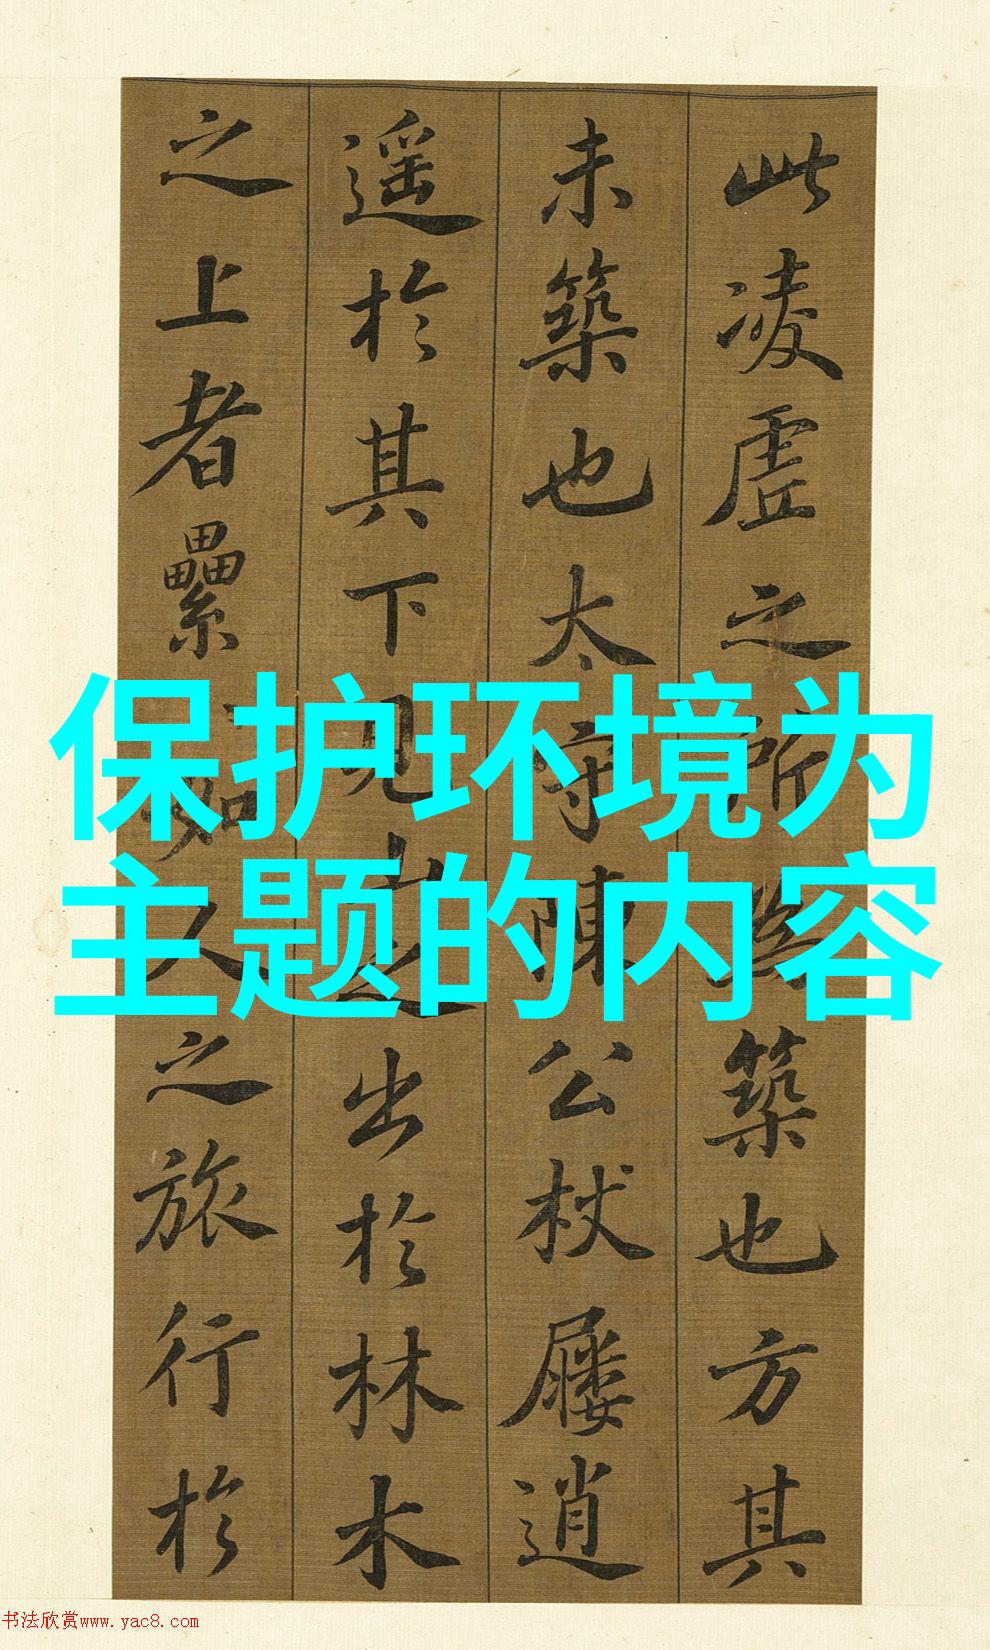 此凌虛之所為築也方其
未築也太守陳公杖屨逍
遥於其下見山之出於林木
之上者纍如人之旅行於
保护环境为
主题的内容
书法欣赏www.yac8.com